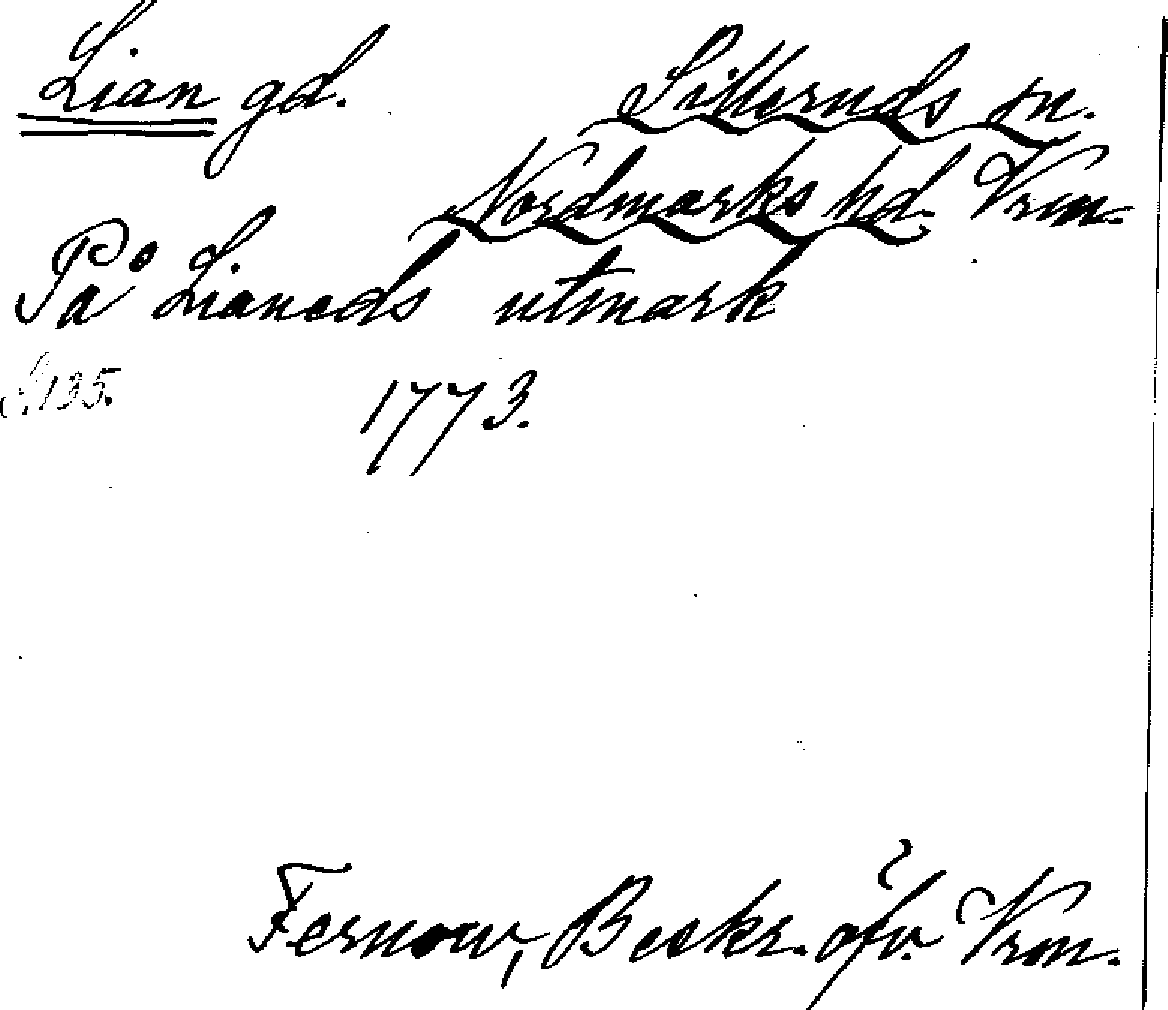 Lian gd. Silleruds sn.
Nordmarks hd. Vrm.
På Lianeds utmark
S. 135. 1773.
Fernow, Beskr. öfv. Vrm.